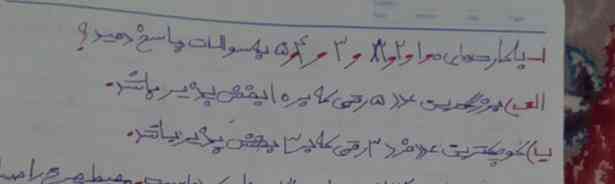 ۱- با کارت‌های ۰ و ۱ و ۲ و ۸ و ۳ و ۴ و ۵ به سوالات پاسخ دهید؟
الف) بزرگترین عدد ۵ رقمی که بر ۱۰ بخش پذیر باشد.
ب) کوچکترین عدد فرد ۳ رقمی که بر ۳ بخش پذیر باشد.